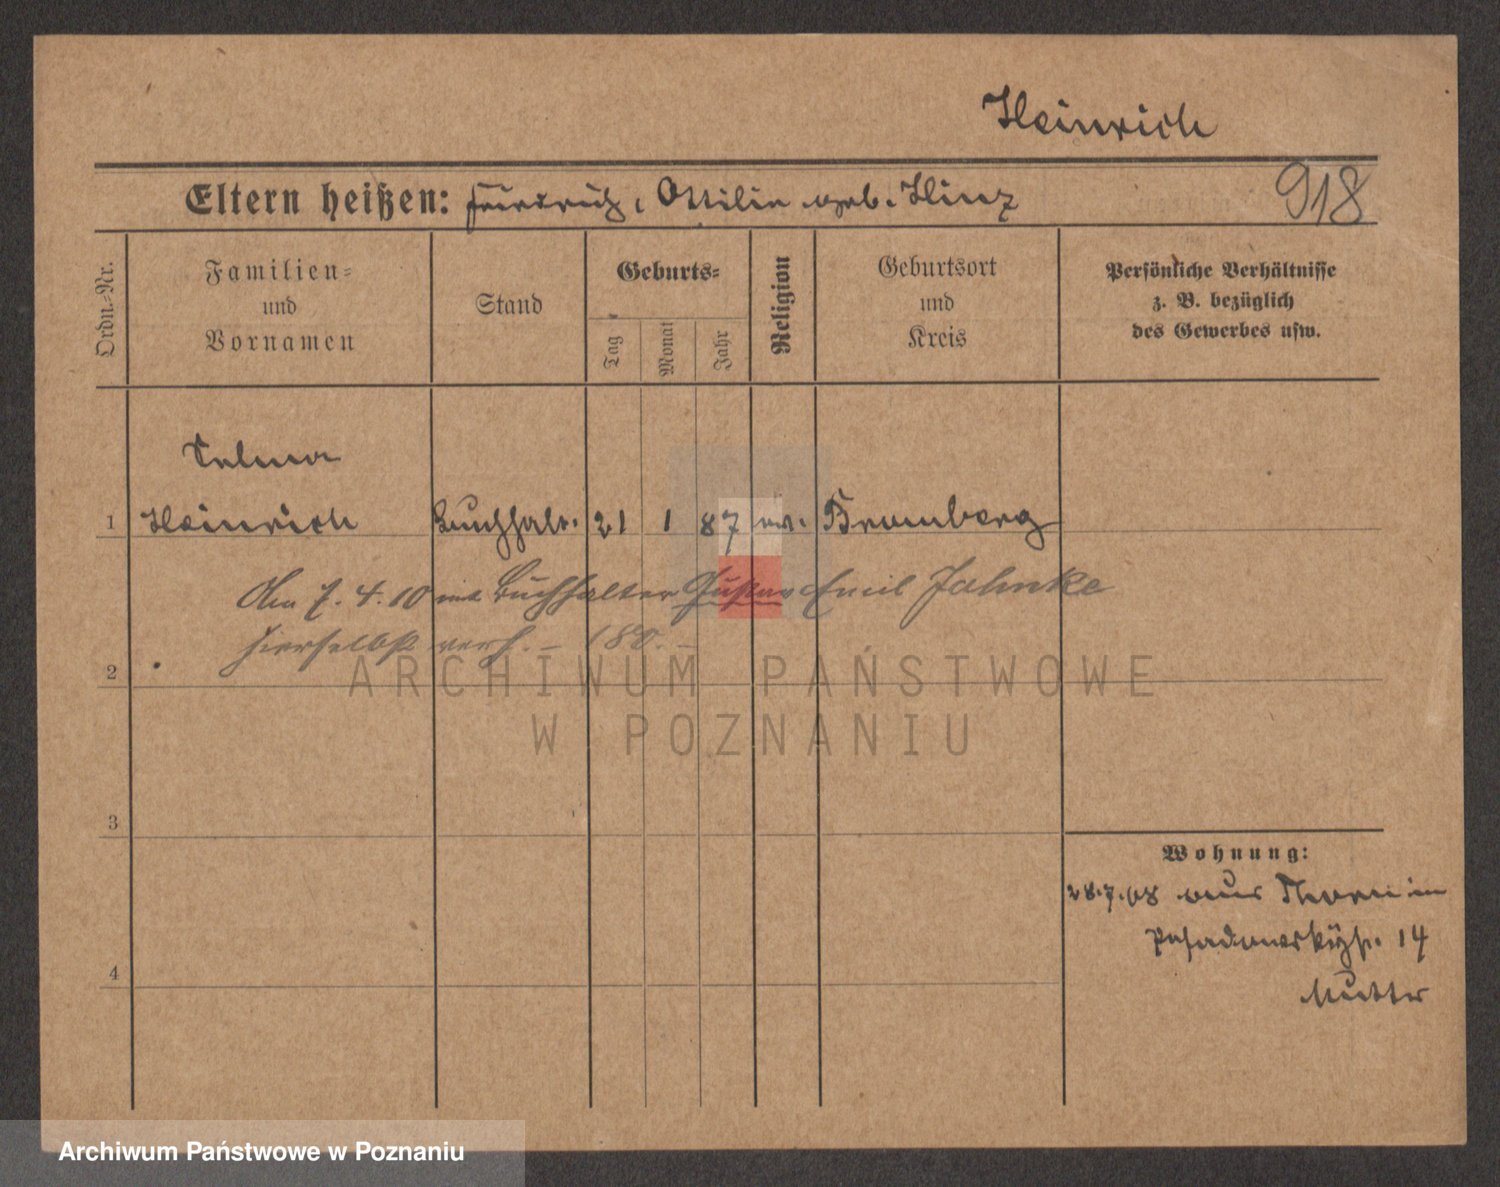 Heinrich
Eltern heißen: Friedrich, Ottilie geb. Hinz
918
Ordn.-Nr.
Familien-
und
Vornamen
Stand
Geburts-
Tag
Monat
Jahr
Religion
Geburtsort
und
Kreis
Persönliche Verhältnisse
z. B. bezüglich
des Gewerbes usw.
Selma
1 Heinrich Buchhalt. 21 1 87 ev. Bromberg
Am 7. 4. 10 mit Buchhalter Gustav Emil Jahnke
hierselbst verh. – 180. –
2
ARCHIWUM PAŃSTWOWE
W POZNANIU
3
Wohnung:
28.7.08 aus Thorn in
Posadowskystr. 14
Mutter
4
Archiwum Państwowe w Poznaniu